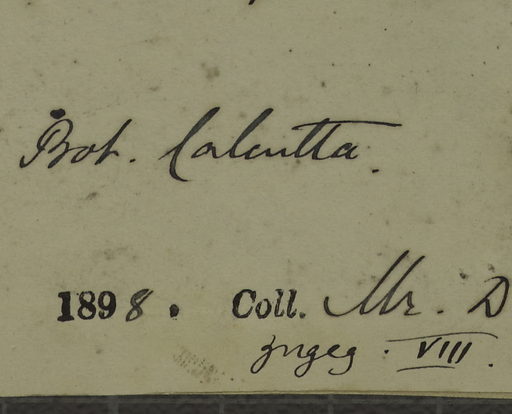 Bot. Calcutta.
1898. Coll. Mr. D
VIII.